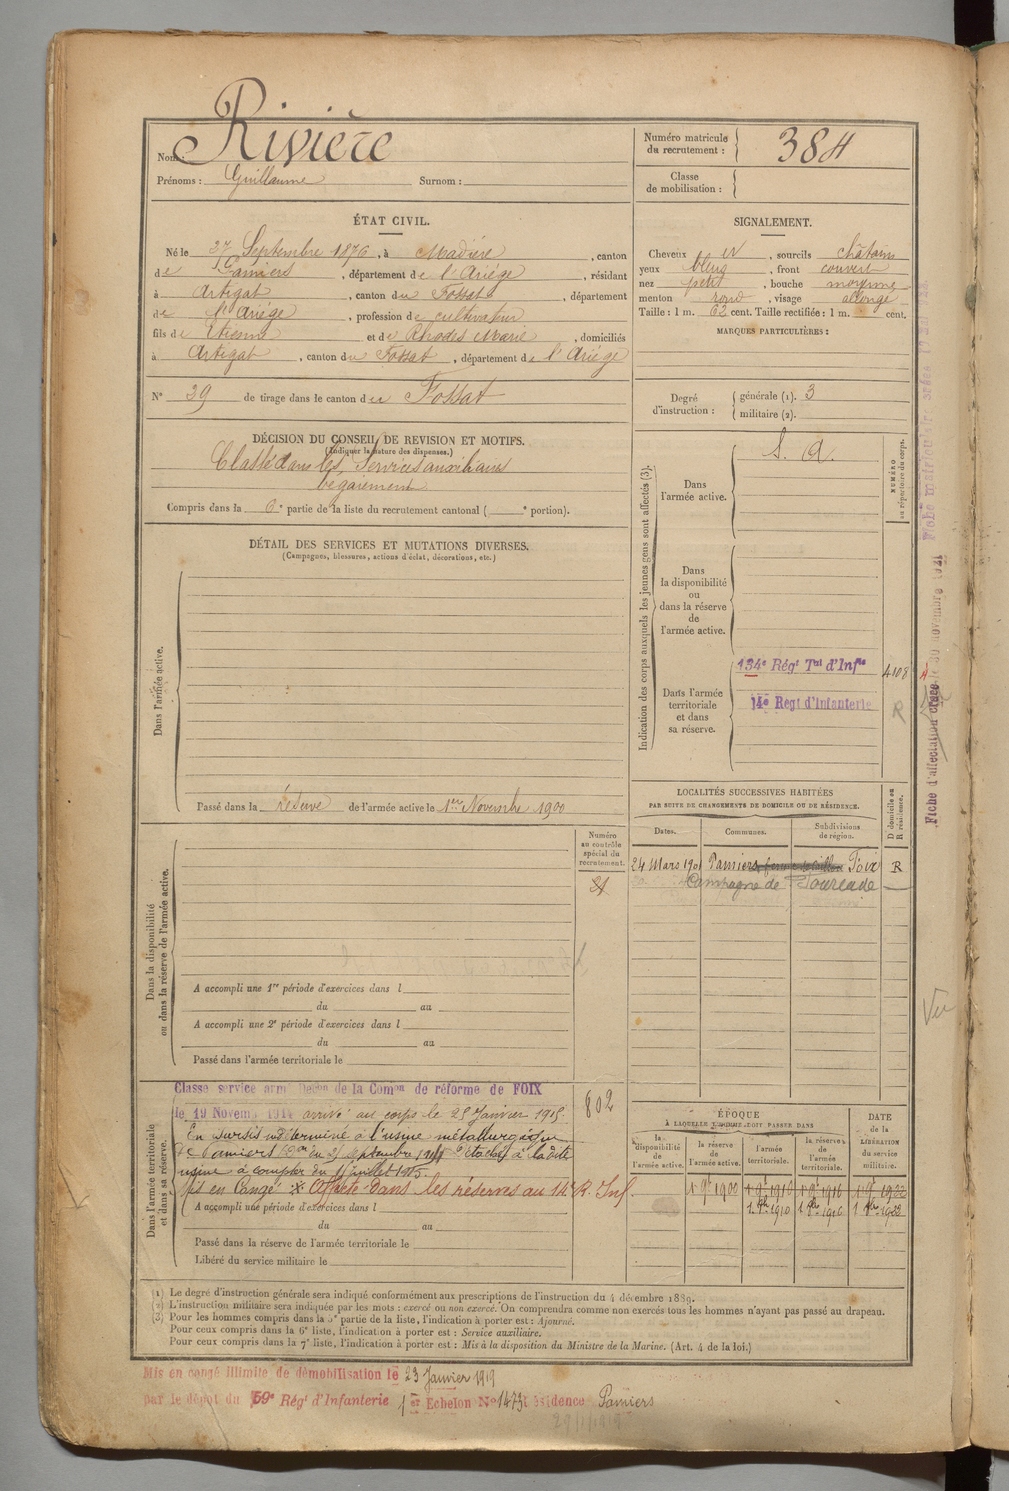 Nom: Rivière
Prénoms : Guillaume Surnom :
Numéro matricule du recrutement : 384
Classe de mobilisation :
ÉTAT CIVIL.
Né le 27 Septembre 1876, à Madière, canton
de Pamiers, département de l'Ariége, résidant
à Artigat, canton du Fossat, département
de l'Ariége, profession de cultivateur
fils de Etienne et de Rhodes Marie, domiciliés
à Artigat, canton du Fossat, département de l'Ariége
N° 39 de tirage dans le canton du Fossat
SIGNALEMENT.
Cheveux , sourcils châtains
yeux bleus, front couvert
nez petit, bouche moyenne
menton rond, visage allongé
Taille : 1 m. 62 cent. Taille rectifiée : 1 m. cent.
MARQUES PARTICULIÈRES :
Degré d'instruction : générale (1). 3
militaire (2).
DÉCISION DU CONSEIL DE REVISION ET MOTIFS.
(Indiquer la nature des dispenses.)
Classé dans les Services auxiliaires
bégaiement
Compris dans la 6e partie de la liste du recrutement cantonal ( e portion).
DÉTAIL DES SERVICES ET MUTATIONS DIVERSES.
(Campagnes, blessures, actions d'éclat, décorations, etc.)
Dans l'armée active.
Passé dans la réserve de l'armée active le 1er Novembre 1900
Indication des corps auxquels les jeunes gens sont affectés (3).
NUMÉRO au répertoire du corps.
Dans l'armée active.
S. A.
Dans la disponibilité ou dans la réserve de l'armée active.
Dans l'armée territoriale et dans sa réserve.
134e Régt Tal d'Infie 4108
14e Regt d'Infanterie R
LOCALITÉS SUCCESSIVES HABITÉES
PAR SUITE DE CHANGEMENTS DE DOMICILE OU DE RÉSIDENCE.
Dates. Communes. Subdivisions de région. D domicile ou R résidence.
24 Mars 1901 Pamiers Foix R
Campagne de
Dans la disponibilité ou dans la réserve de l'armée active.
Numéro au contrôle spécial du recrutement.
A accompli une 1re période d'exercices dans l
du au
A accompli une 2e période d'exercices dans l
du au
Passé dans l'armée territoriale le
Dans l'armée territoriale et dans sa réserve.
Classe service armé Déčon de la Comon de réforme de FOIX
802
le 19 Novemb 1914 arrivé au corps le 25 Janvier 1915
En sursis indéterminé à l'usine métallurgique
de Pamiers don du 29 septembre détaché à ladite
usine à compter du 1 juillet 1915
Mis en Congé Affecté dans les réserves au 14e R. Inf.
A accompli une période d'exercices dans l
du au
Passé dans la réserve de l'armée territoriale le
Libéré du service militaire le
ÉPOQUE
À LAQUELLE L'HOMME DOIT PASSER DANS
la disponibilité de l'armée active. la réserve de l'armée active. l'armée territoriale. la réserve de l'armée territoriale.
DATE de la LIBÉRATION du service militaire.
(1) Le degré d'instruction générale sera indiqué conformément aux prescriptions de l'instruction du 4 décembre 1889.
(2) L'instruction militaire sera indiquée par les mots : exercé ou non exercé. On comprendra comme non exercés tous les hommes n'ayant pas passé au drapeau.
(3) Pour les hommes compris dans la 5e partie de la liste, l'indication à porter est : Ajourné.
Pour ceux compris dans la 6e liste, l'indication à porter est : Service auxiliaire.
Pour ceux compris dans la 7e liste, l'indication à porter est : Mis à la disposition du Ministre de la Marine. (Art. 4 de la loi.)
Mis en congé illimité de démobilisation le 23 Janvier 1919
par le dépôt du 59e Régt d'Infanterie 1er Echelon No 1473 résidence Pamiers
Vu